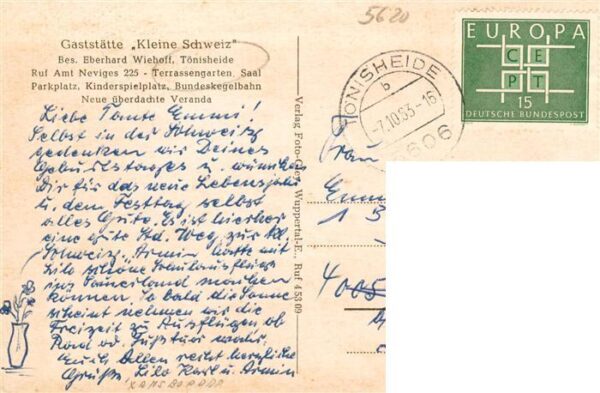 5620
Gaststätte „Kleine Schweiz"
Bes. Eberhard Wiehoff, Tönisheide
Ruf Amt Neviges 225 - Terrassengarten, Saal
Parkplatz, Kinderspielplatz, Bundeskegelbahn
Neue überdachte Veranda
Liebe Tante Emmi!
Selbst in der Schweiz
gedenken wir Deines
Geburtstages u. wünschen
Dir für das neue Lebensjahr
u. dem Festtag selbst
alles Gute. Es ist hierher
eine gute Std. Weg, zur Kl.
Schweiz. Armin hatte mit
Lilo schöne Schulausflüge
ins Sauerland machen
können. So bald die Sonne
scheint nehmen wir die
Freizeit zu Ausflügen ob
Rad od. Fußtour wahr.
Euch Allen recht herzliche
Grüße, Lilo Karl u. Armin
Verlag Foto- Wuppertal-E., Ruf 45309
TÖNISHEIDE
b
-7.10.63-16
5606
EUROPA
CEPT
15
DEUTSCHE BUNDESPOST
Frau
Emm
1 B
4005